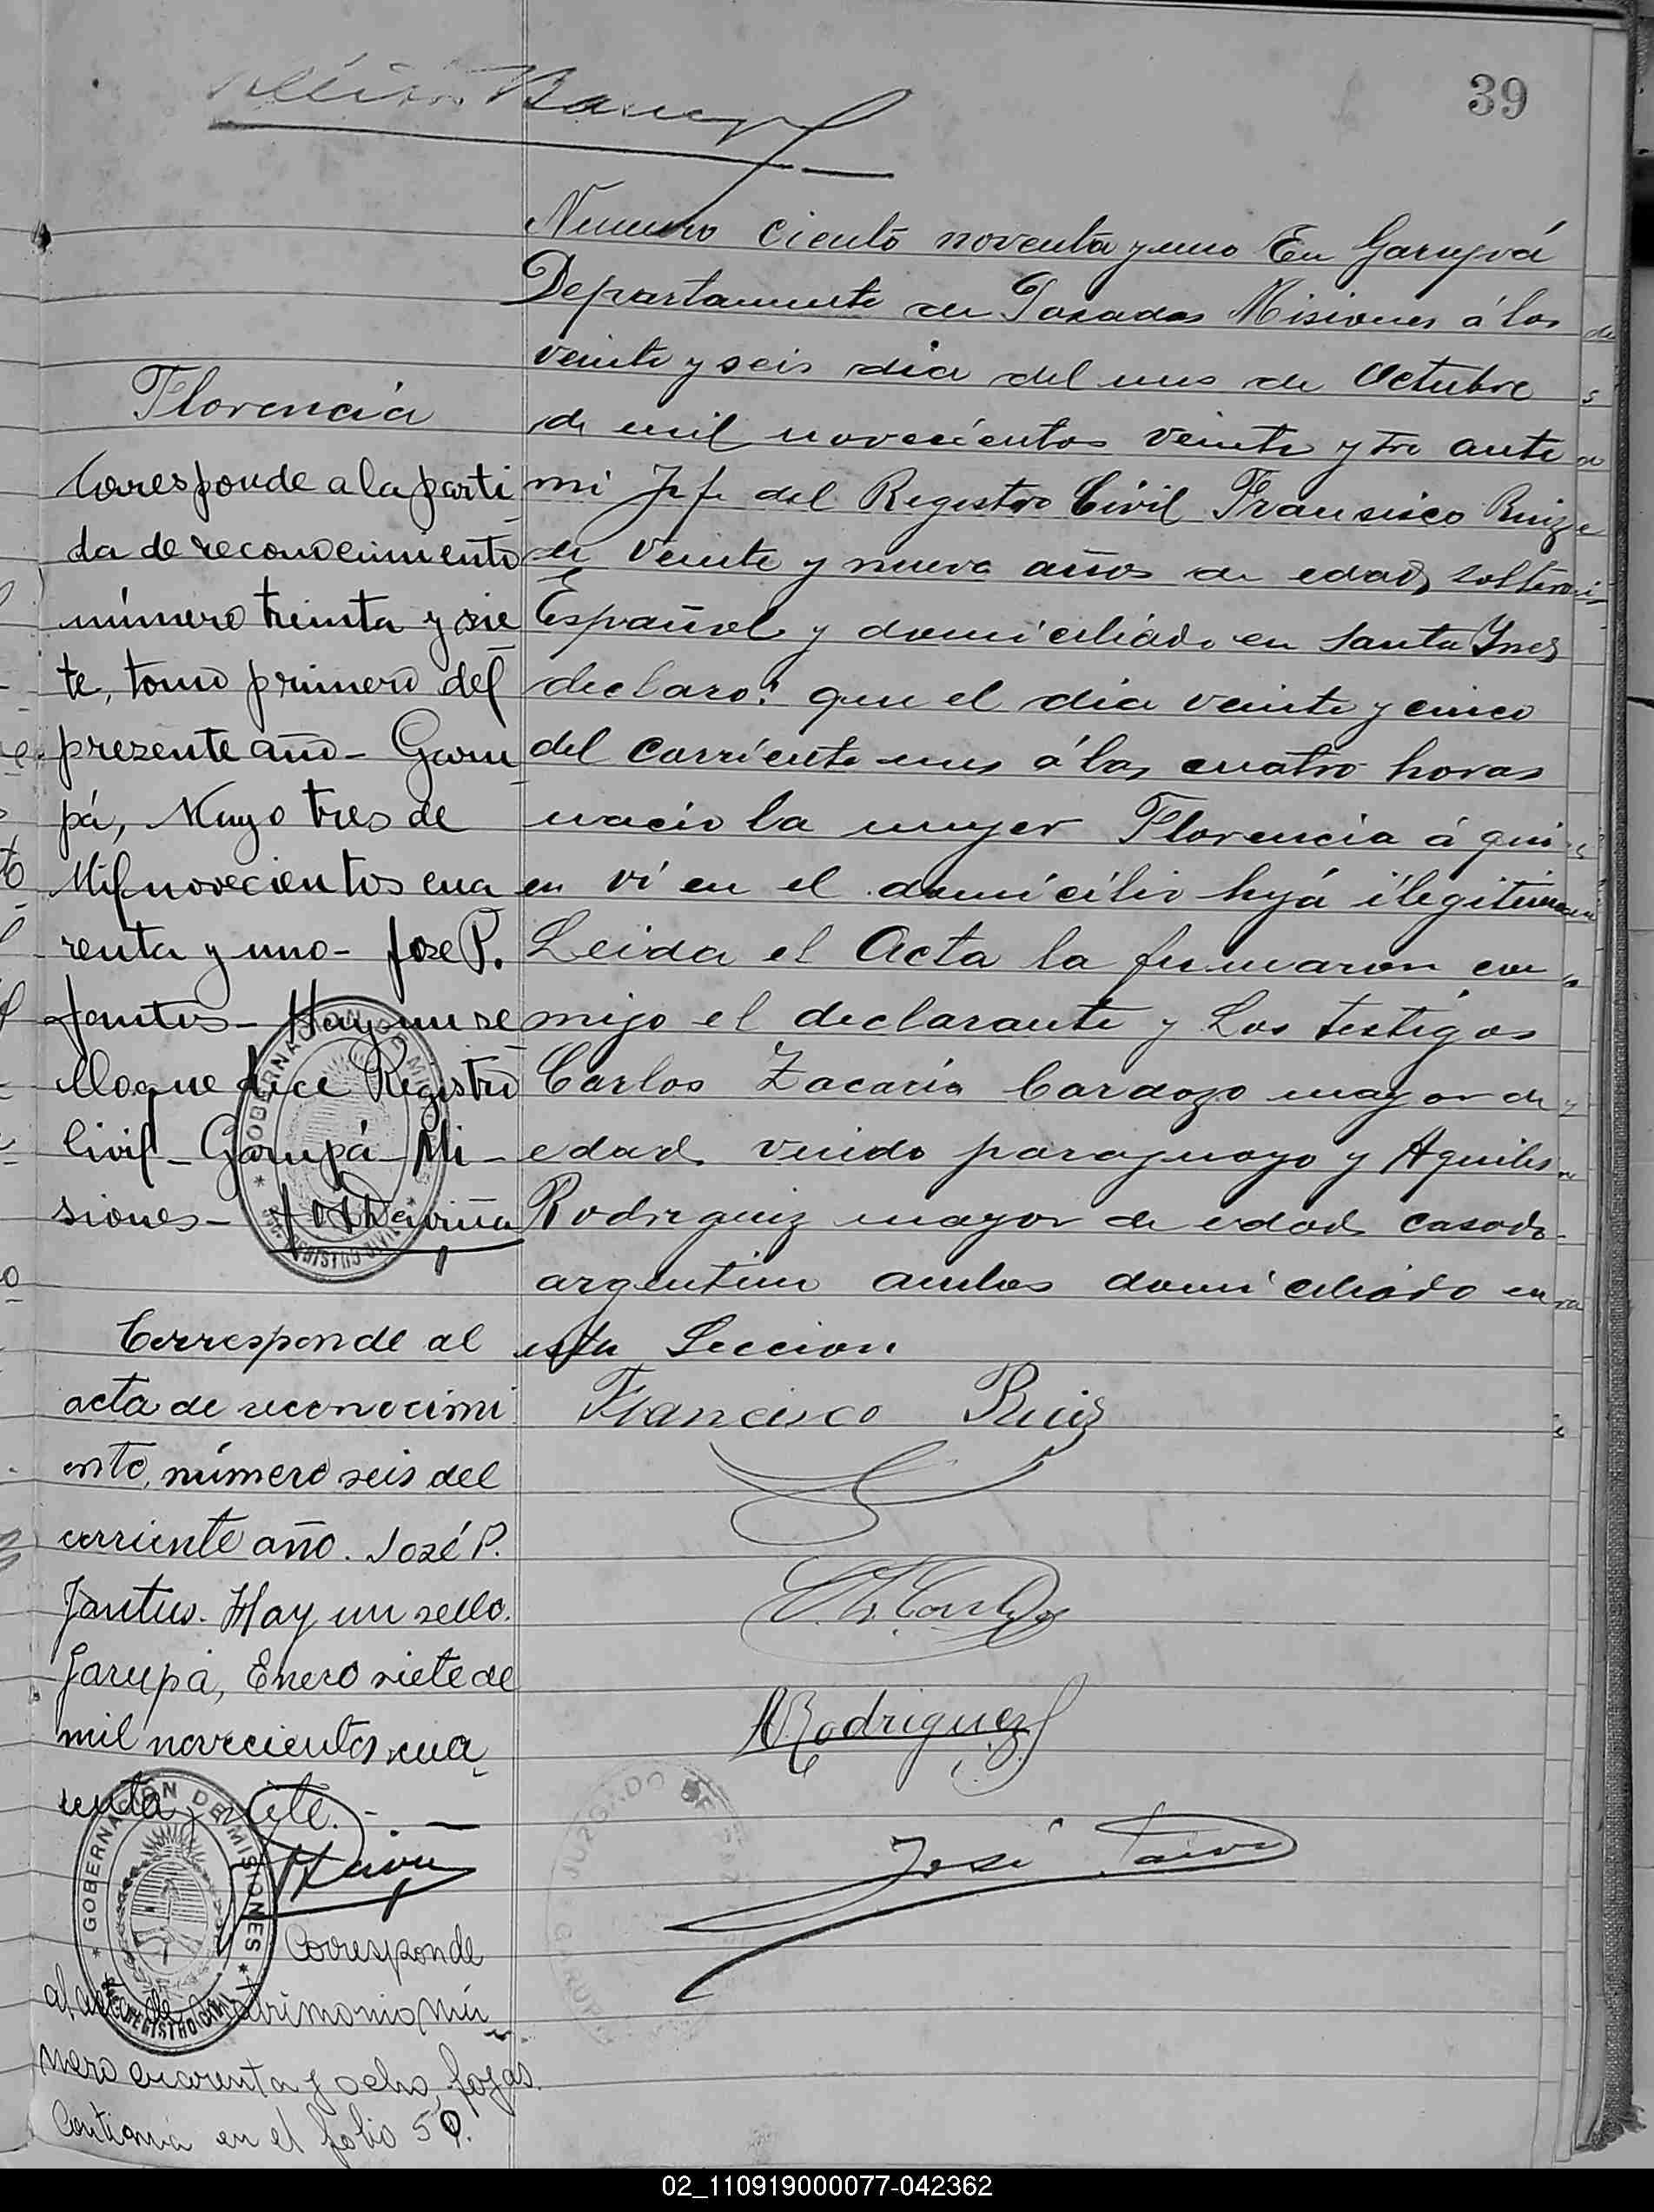 39
Numero ciento noventa y uno En Garupá
Departamente de Posadas Misiones á los
veinte y seis dia del mes de Octubre
de mil novecientos veinte y tre ante
mi Jefe del Registro Civil Fransisco Ruiz
de veinte y nueva años de edad, soltero
Español y domiciliado en Santa Ynes
declaro: que el dia veinte y cinco
del corriente mes á las cuatro horas
nacio la muyer Florencia á qui
en vi en el domicilio hyá ilegitima
Leida el Acta la firmaron con
migo el declarante y Los testigos
Carlos Zacaria Cardozo mayor de
edad viudo paraguayo y Aquiles
Rodriguiz mayor de edad casado
argentino ambos domiciliado en
esta Seccion
Francisco Ruiz
ARodriguez
José Paiva
Florencia
Coresponde a la parti
da de reconocimiento
número treinta y sie
te, tomo primero del
presente año - Garu
pá, Mayo tres de
Mil novecientos cua
renta y uno - Jose P.
Jantus - Hay un se
llo que dice Registro
Civil - Garupá - Mi -
siones -
GOBERNACION DE MISIONES
REGISTRO CIVIL
Corresponde al
acta de reconocimi
ento, número seis del
corriente año. José P.
Jantus. Hay un sello.
Garupá, Enero siete de
mil novecientos cua
renta y siete. -
GOBERNACION DE MISIONES
REGISTRO CIVIL
JUZGADO DE
Corresponde
al acta de matrimonio nú
mero cuarenta y ocho, fojas.
Continúa en el folio 50.
02_110919000077-042362